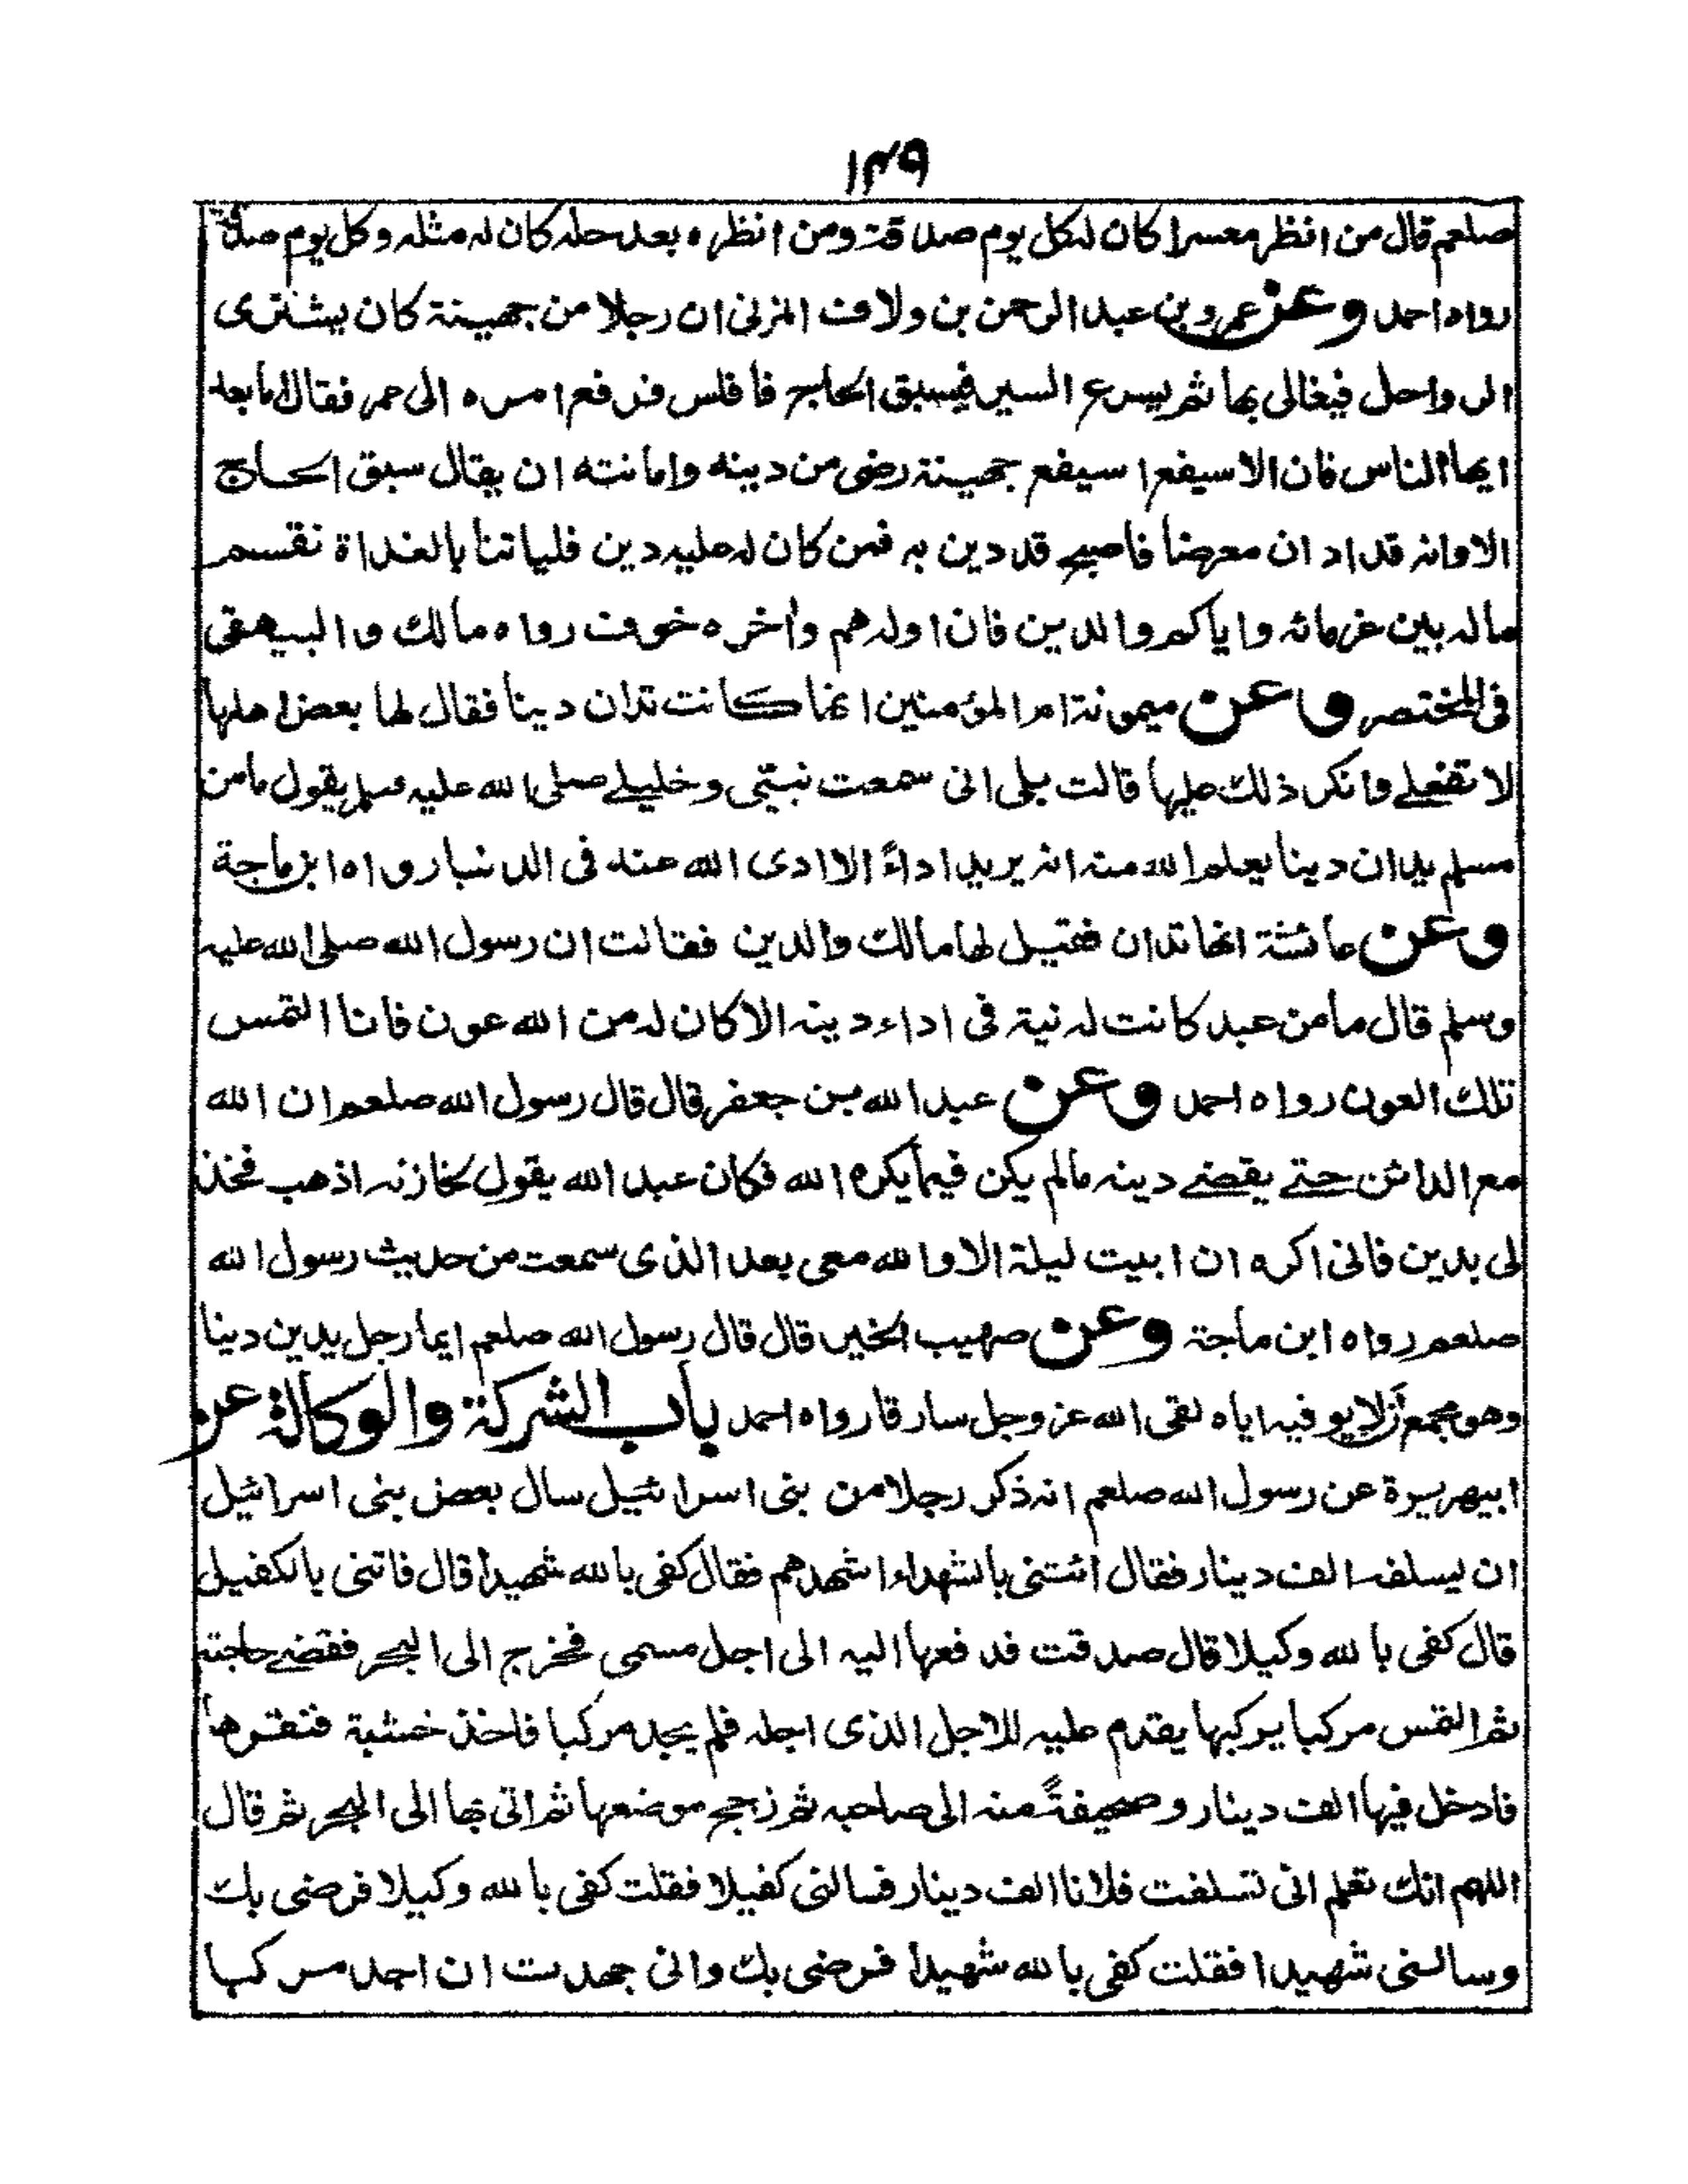 ١٣٩
صلعم قال من انظر معسرا كان له كل يوم صدقة ومن انظره بعد حله كان له مثله وكل يوم صدقة
رواه احمد وعن عمرو بن عبد الرحمن بن ولاف المزنى ان رجلا من جهينة كان يشترى
الرواحل فيغالى بها ثم يسرع السير فيسبق الحاج فافلس فرفع امره الى عمر فقال اما بعد
ايها الناس فان الاسيفع اسيفع جهينة رضى من دينه وامانته ان يقال سبق الحاج
الا وانه قد ادان معرضا فاصبح قد دين به فمن كان له عليه دين فلياتنا بالغداة نقسم
ماله بين غرمائه واياكم والدين فان اوله هم واخره خوف رواه مالك والبيهقى
فى المختصر وعن ميمونة ام المؤمنين انها كانت تدان دينا فقال لها بعض اهلها
لا تفعلے وانكر ذلك عليها قالت بلى انى سمعت نبيى وخليلے صلى الله عليه وسلم يقول ما من
مسلم يدان دينا يعلم الله منه انه يريد اداءً الا ادى الله عنه فى الدنيا رواه ابن ماجة
وعن عائشة انها تدان فقيل لها مالك والدين فقالت ان رسول الله صلى الله عليه
وسلم قال ما من عبد كانت له نية فى اداء دينه الا كان له من الله عون فانا التمس
تلك العون رواه احمد وعن عبد الله بن جعفر قال قال رسول الله صلعم ان الله
مع الدائن حتے يقضے دينه مالم يكن فيما يكره الله فكان عبد الله يقول لخازنه اذهب فخذ
لى بدين فانى اكره ان ابيت ليلة الا والله معى بعد الذى سمعت من حديث رسول الله
صلعم رواه ابن ماجة وعن صهيب الخير قال قال رسول الله صلعم ايما رجل يدين دينا
وهو مجمع ان لا يوفيه اياه لقى الله عز وجل سارقا رواه احمد باب الشركة والوكالة عن
ابيهريرة عن رسول الله صلعم انه ذكر رجلا من بنى اسرائيل سال بعض بنى اسرائيل
ان يسلفه الف دينار فقال ائتنى بالشهداء اشهدهم فقال كفى بالله شهيدا قال فاتنى بالكفيل
قال كفى بالله وكيلا قال صدقت فدفعها اليه الى اجل مسمى فخرج الى البحر فقضے حاجته
ثم التمس مركبا يركبها يقدم عليه للاجل الذى اجله فلم يجد مركبا فاخذ خشبة فنقرها
فادخل فيها الف دينار وصحيفةً منه الى صاحبه ثم زجج موضعها ثم اتى بها الى البحر ثم قال
اللهم انك تعلم انى تسلفت فلانا الف دينار فسالنى كفيلا فقلت كفى بالله وكيلا فرضى بك
وسالنى شهيدا فقلت كفى بالله شهيدا فرضى بك وانى جهدت ان اجد مركبا